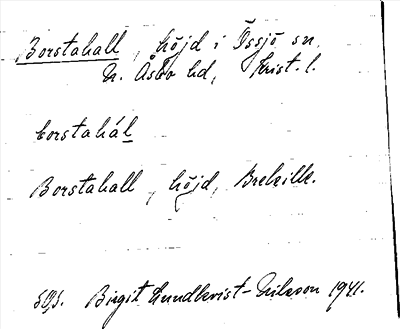 Borstahall, höjd i Össjö sn,
N. Åsbo hd, Krist. l.
borstahál
Borstahall, höjd,
Birgit Lundkvist-Nilsson 1941.